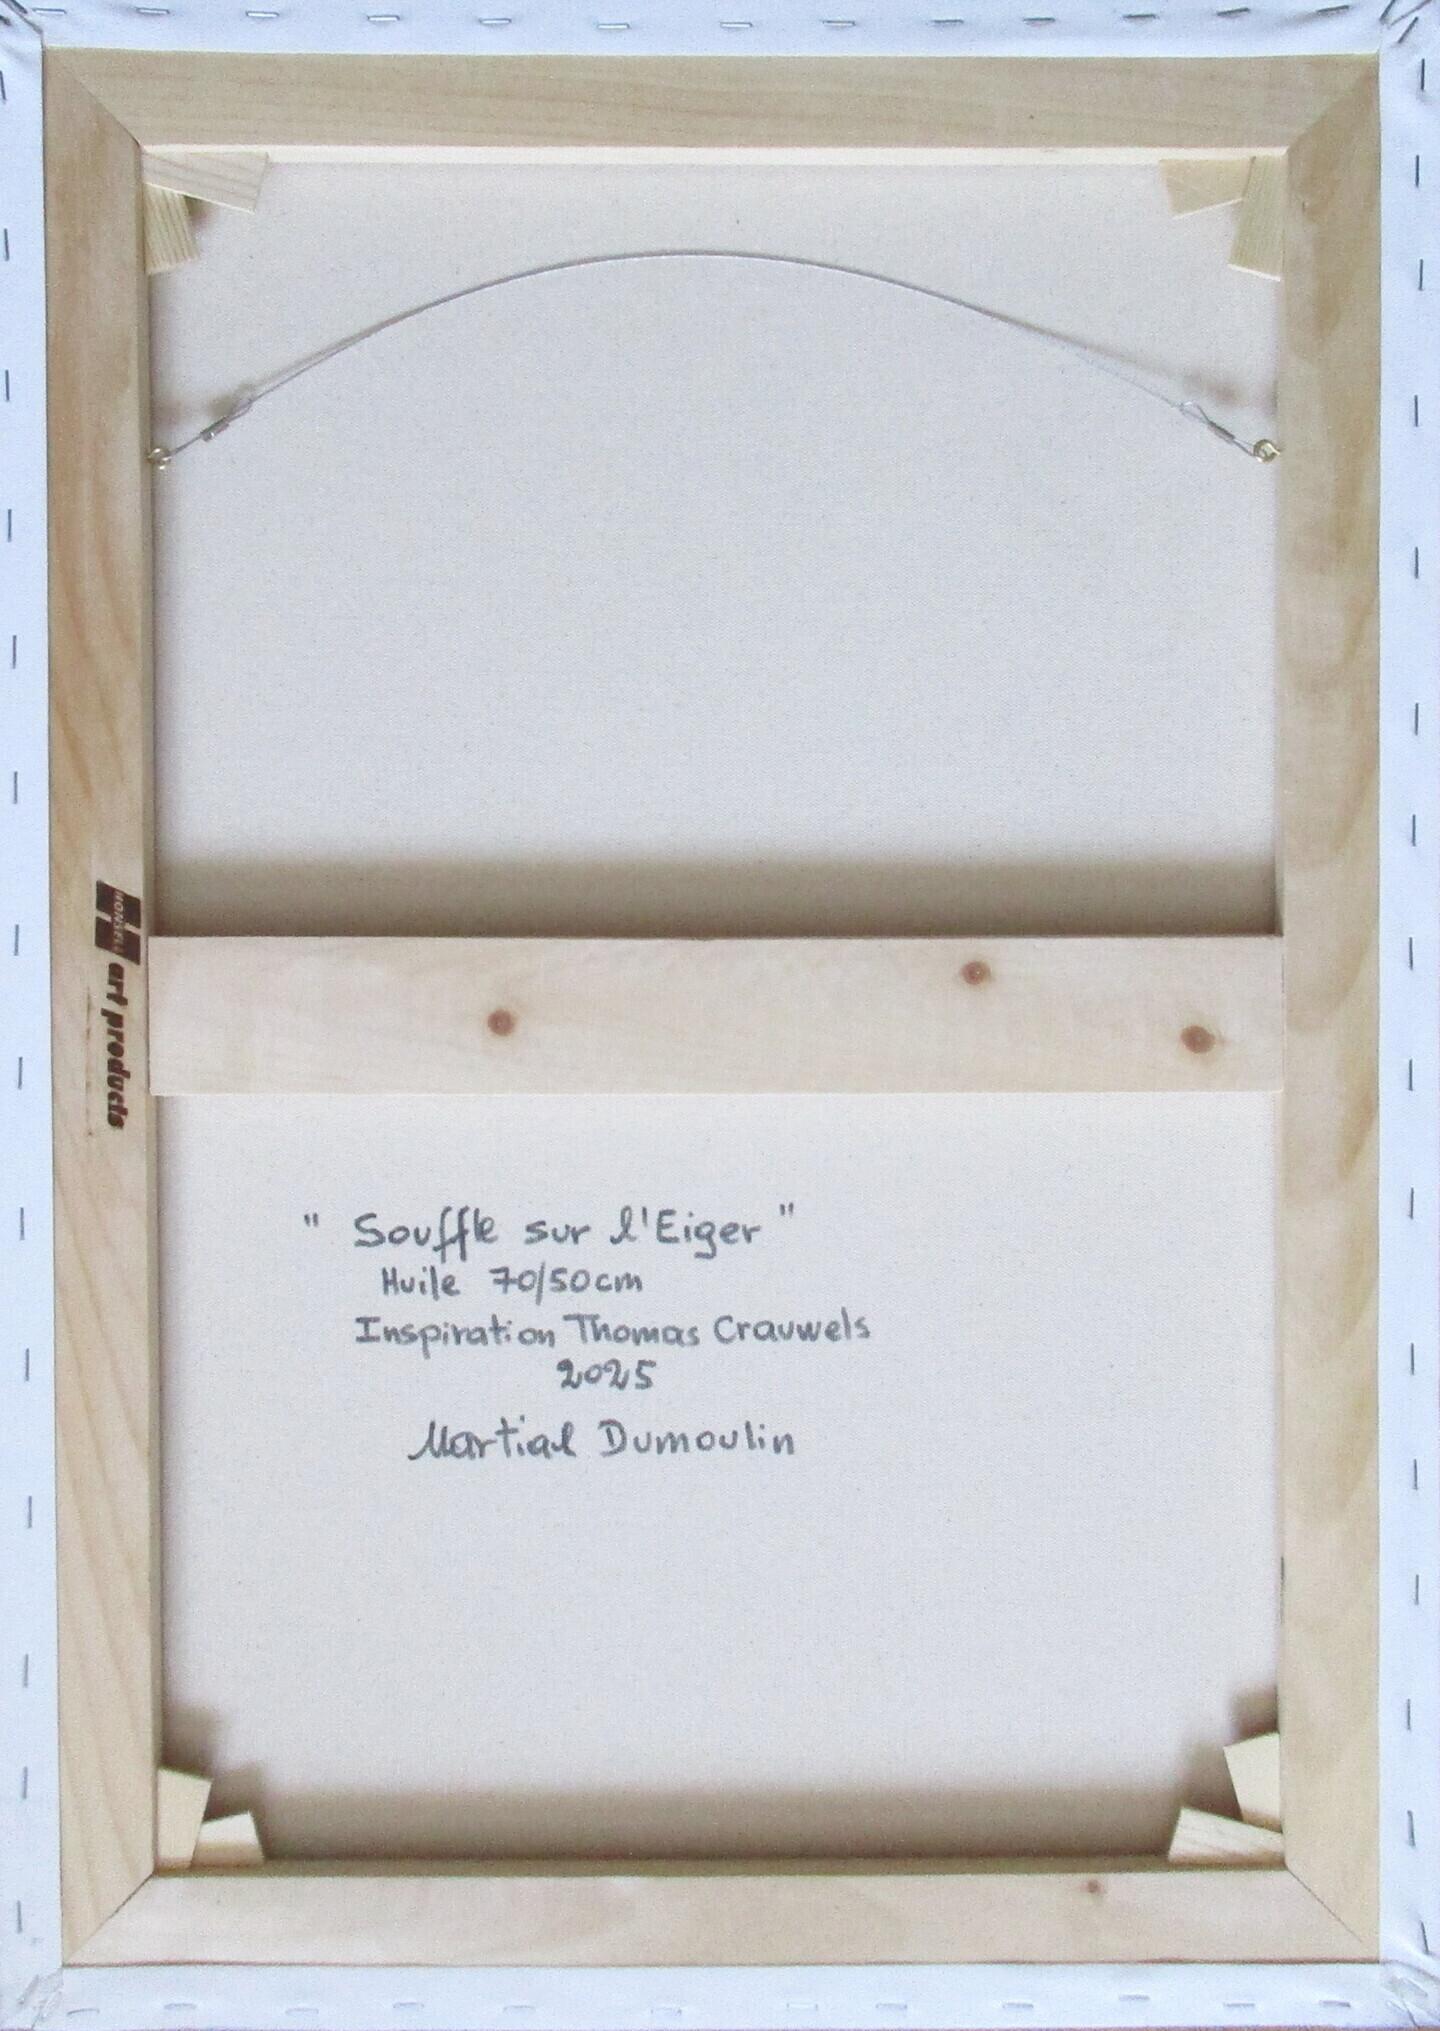 HONSELL
art products
" Souffle sur l'Eiger "
Huile 70/50cm
Inspiration Thomas Crauwels
2025
Martial Dumoulin